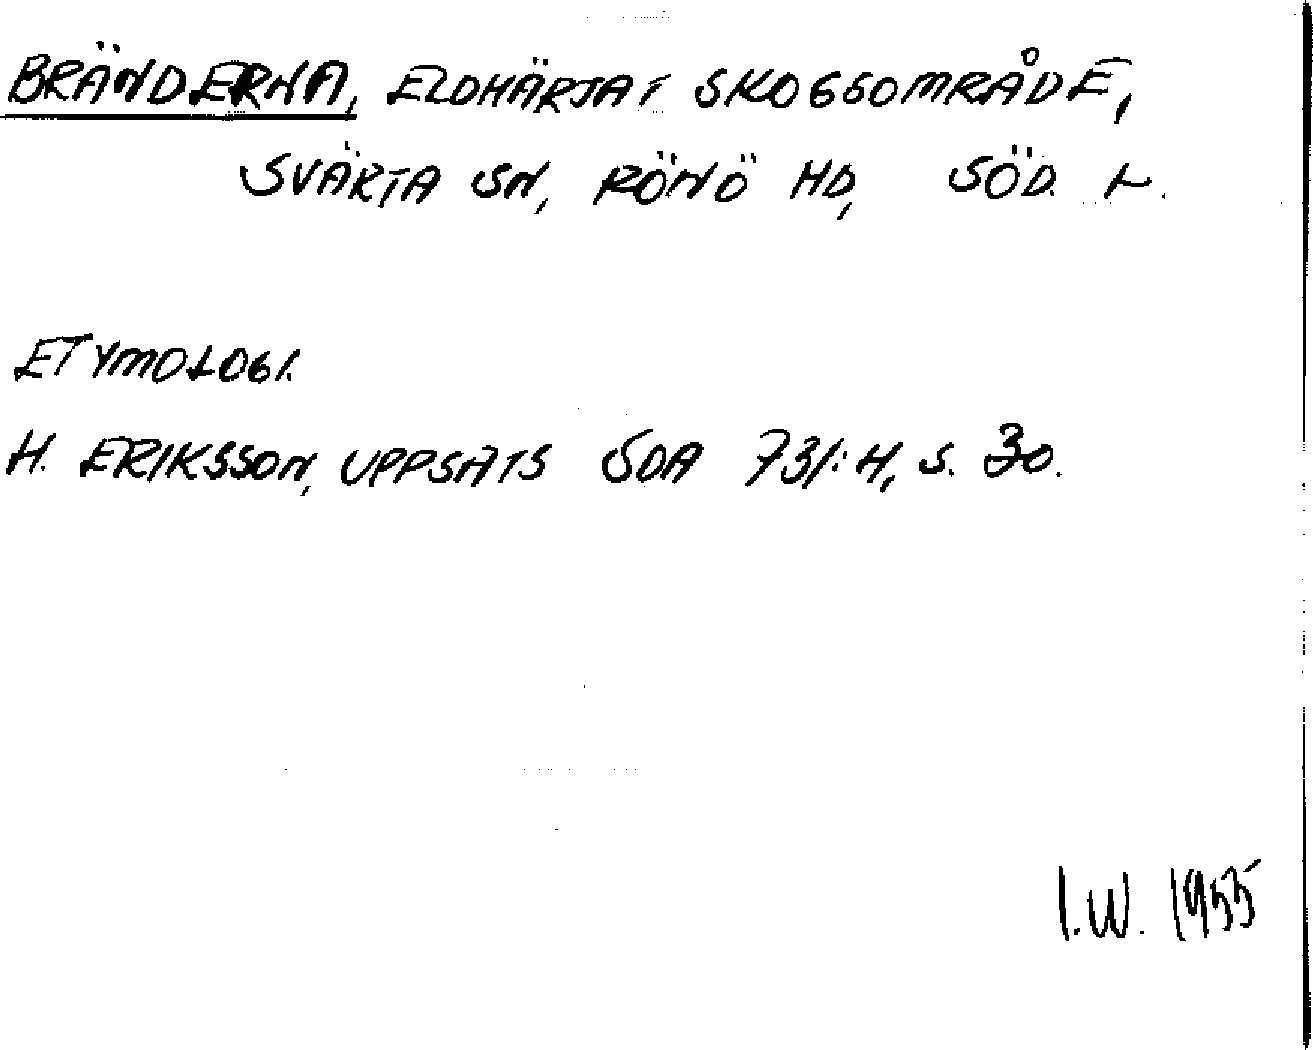 BRÄNDERNA, ELDHÄRJAT SKOGSOMRÅDE,
SVÄRTA SN, RÖNÖ HD, SÖD. L.
ETYMOLOGI.
H. ERIKSSON, UPPSATS SOA 731:4, S. 30.
I.W. 1955